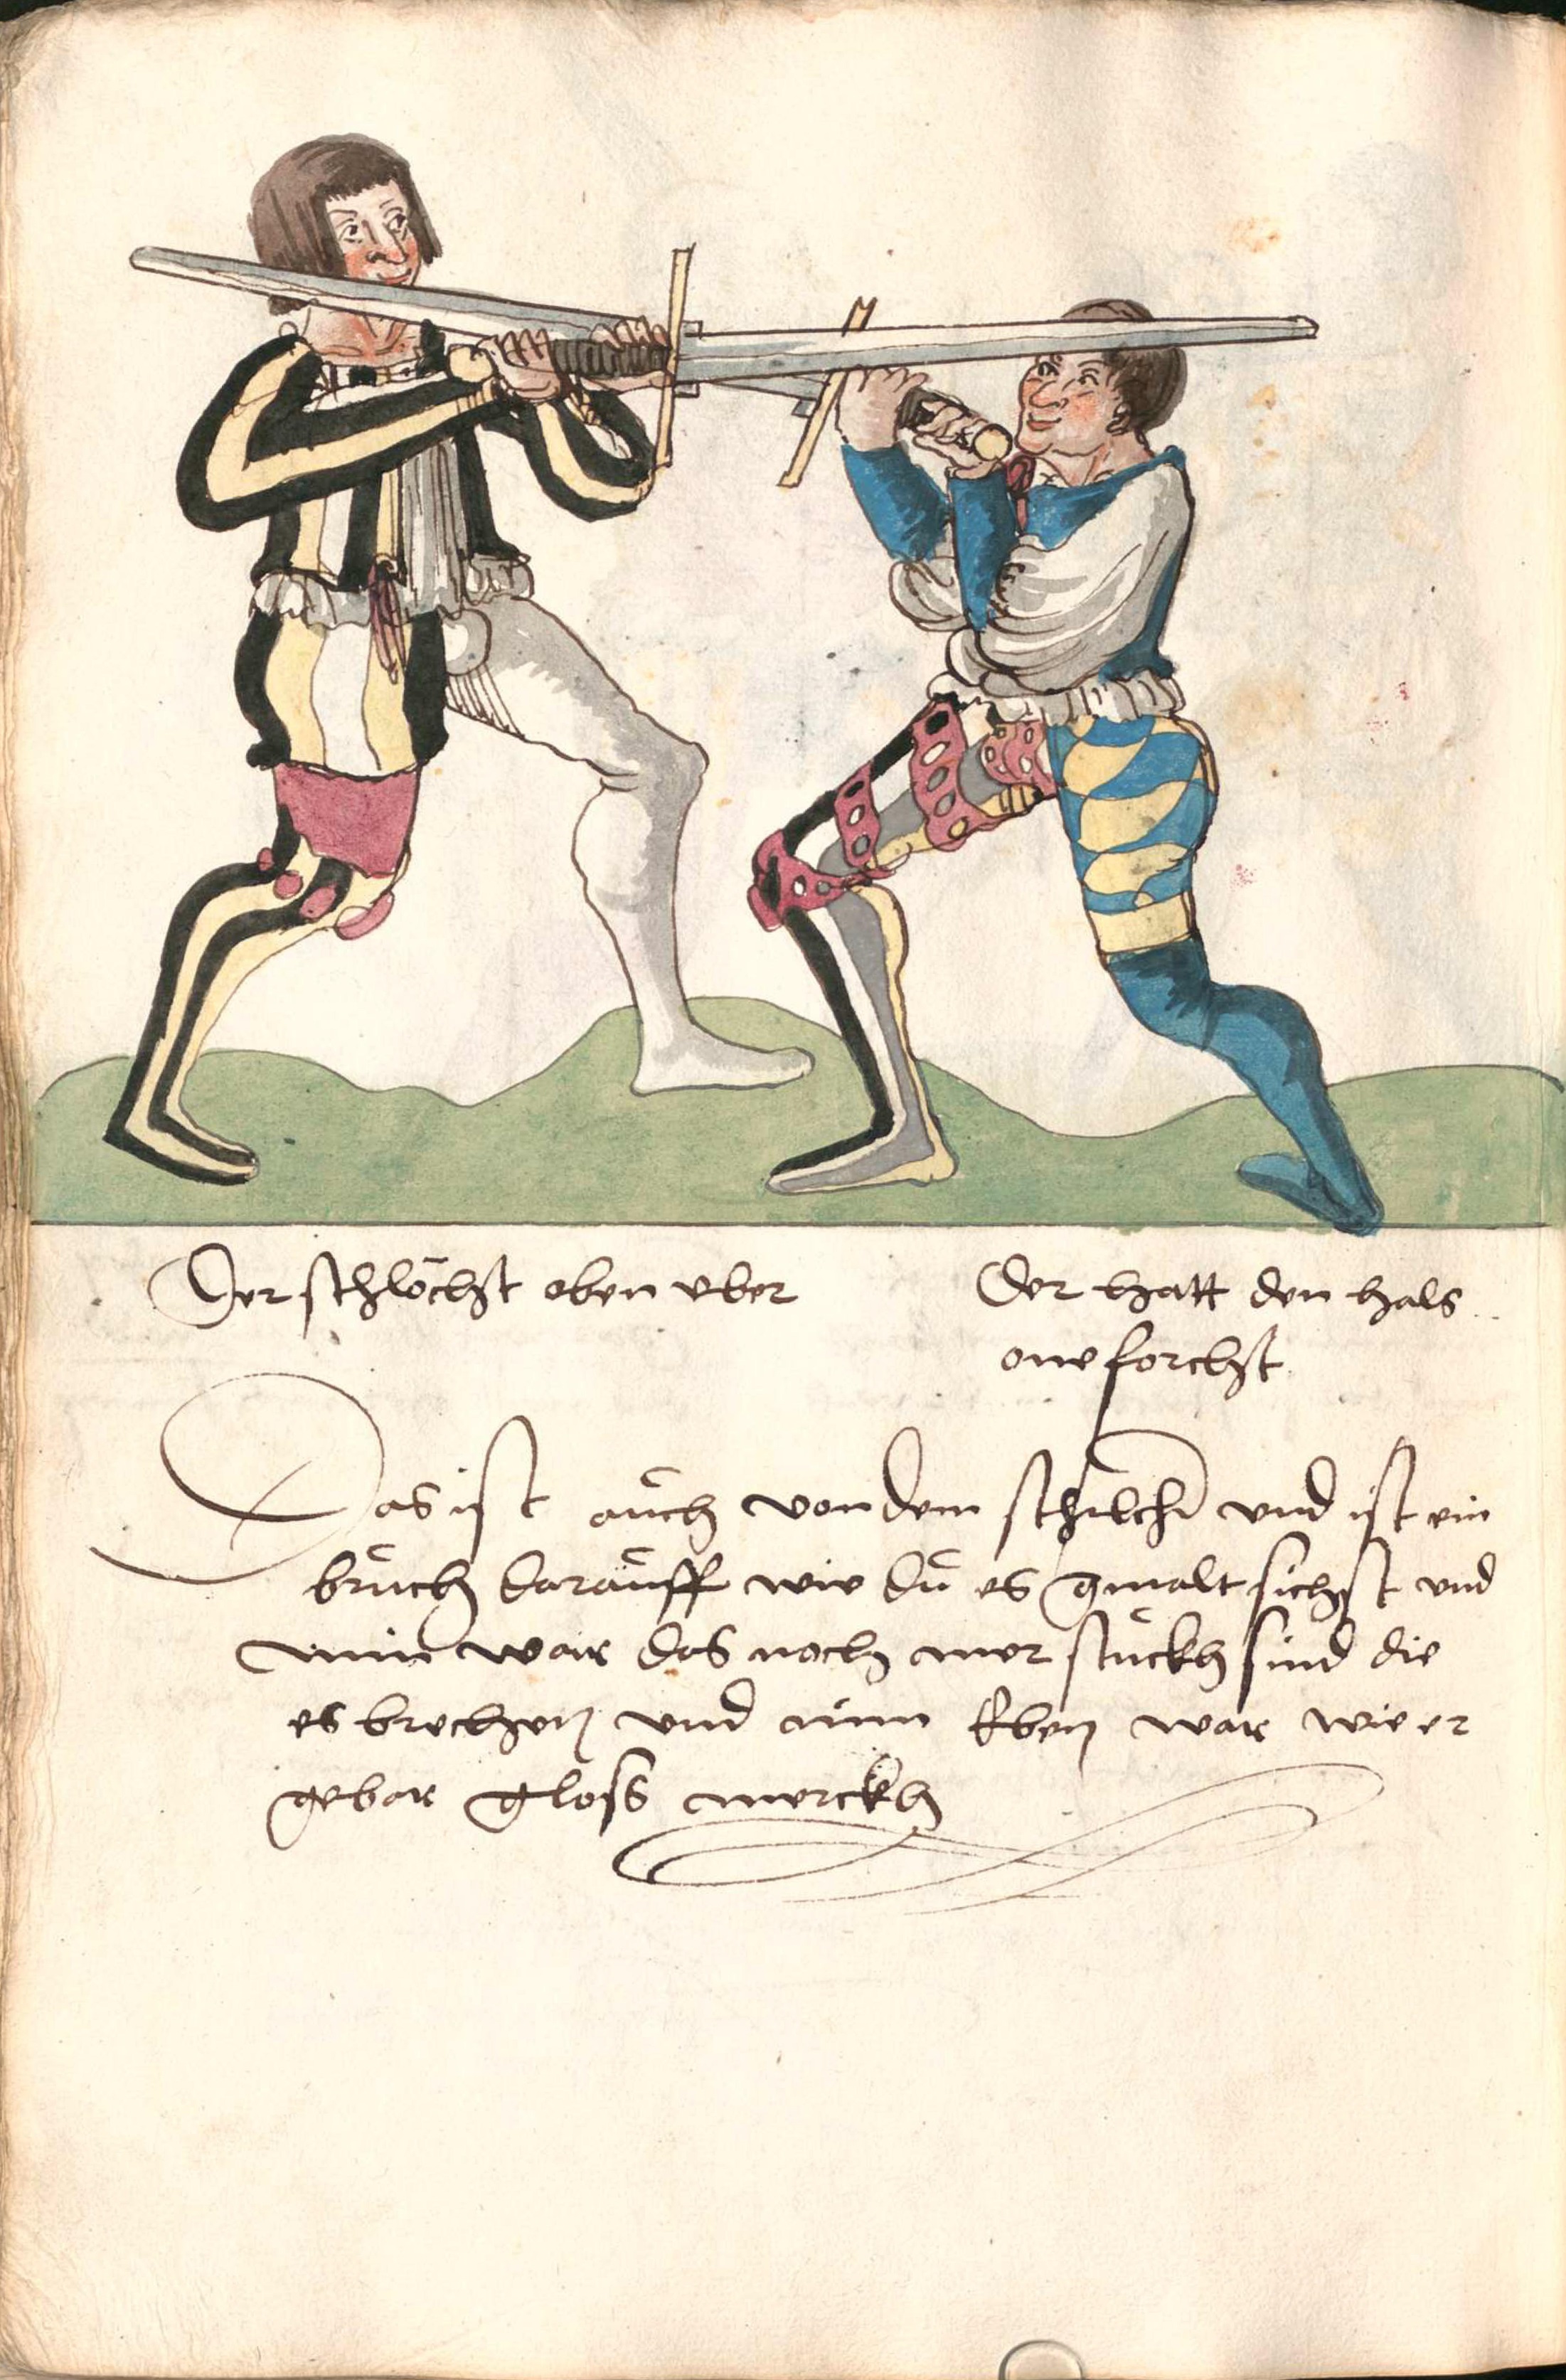 Der schlöchst oben uber
Der hatt den hals
one forchst
Das ist auch von dem schilcher und ist ein
bruch darauff wie du es gmalt sichst und
nim war das noch mer stuckh sind die
es brechen und nim Eben war wie er
gebar gloss merckh